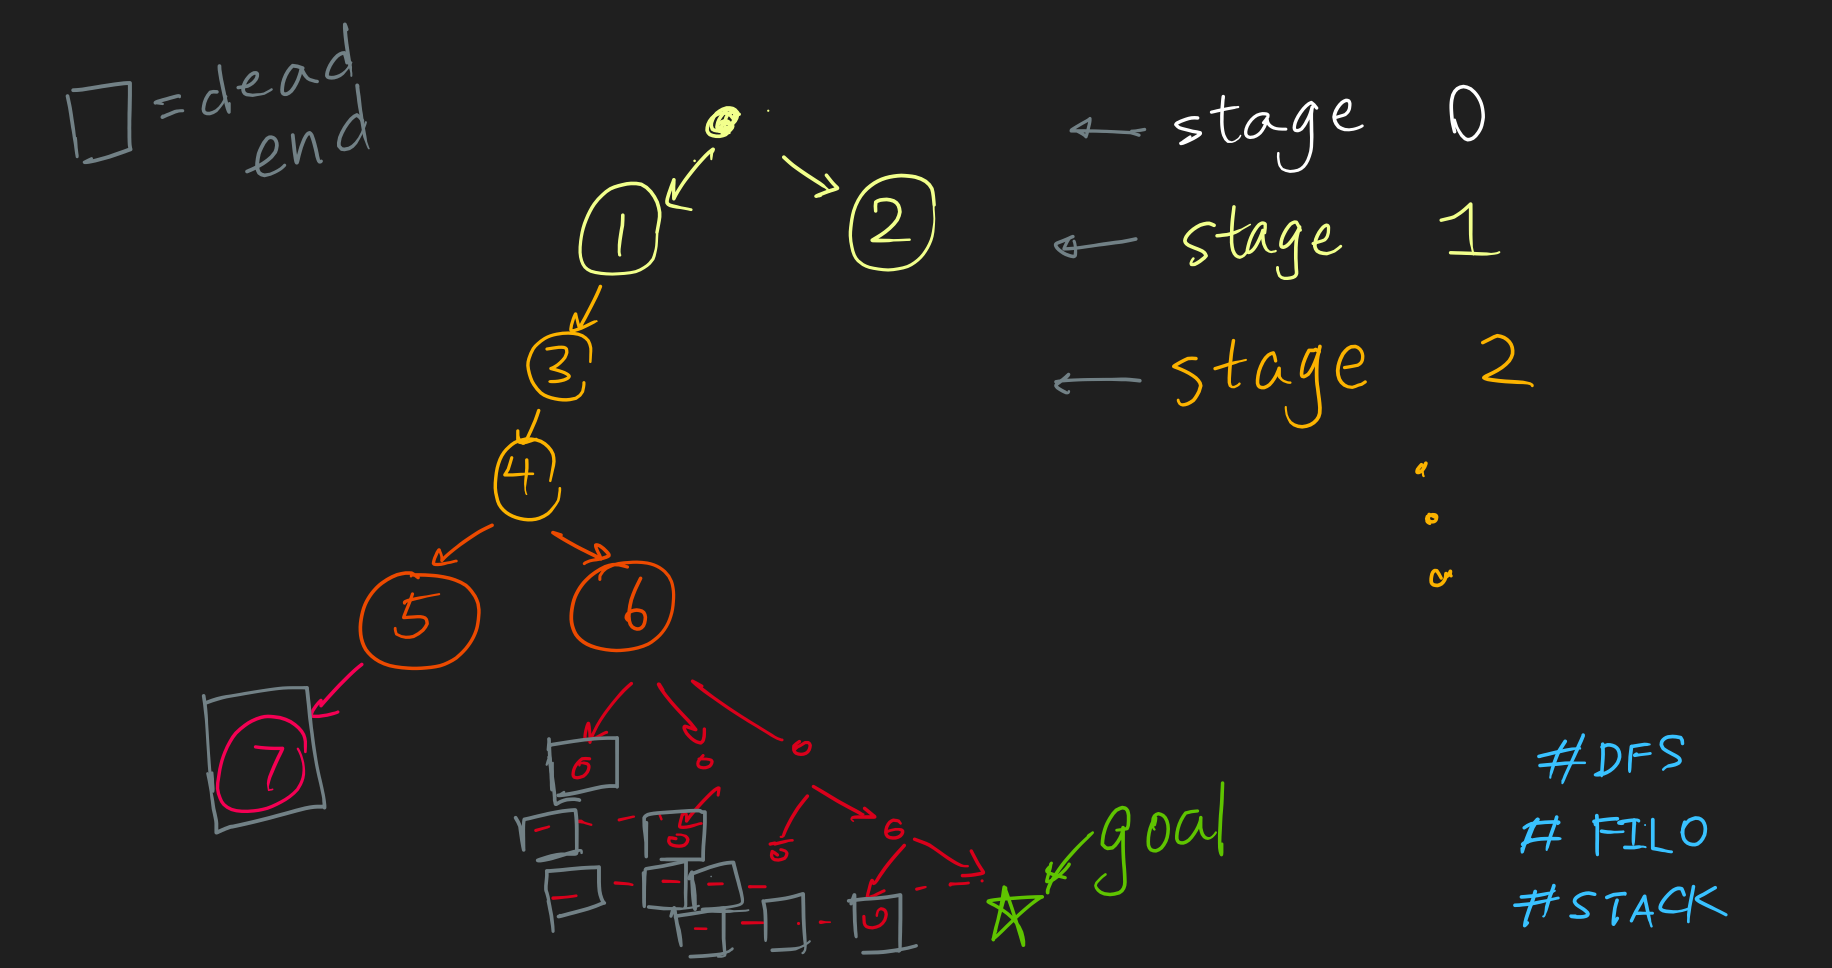 = dead
end
stage 0
1
2
stage 1
3
stage 2
4
5
6
7
goal
#DFS
# FILO
#STACK